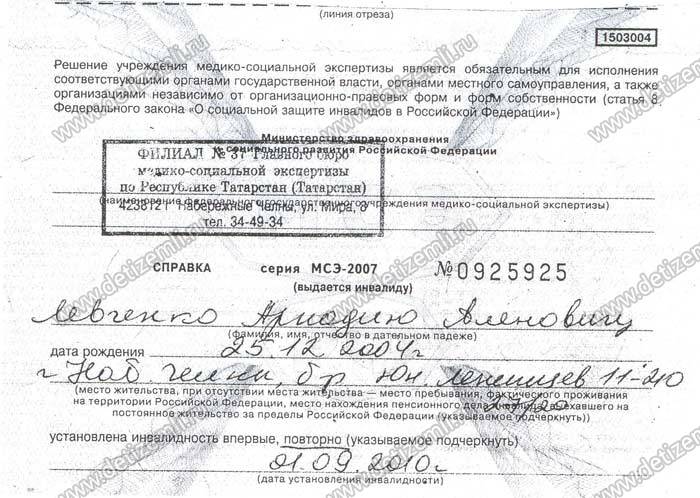 (линия отреза)
1503004
Решение учреждения медико-социальной экспертизы является обязательным для исполнения
соответствующими органами государственной власти, органами местного самоуправления, а также
организациями независимо от организационно-правовых форм и форм собственности (статья 8
Федерального закона «О социальной защите инвалидов в Российской Федерации»)
Министерство здравоохранения
и социального развития Российской Федерации
ФИЛИАЛ № 37 Главного бюро
медико-социальной экспертизы
по Республике Татарстан (Татарстан)
423812 г. Набережные Челны, ул. Мира, 8
тел. 34-49-34
(наименование федерального государственного учреждения медико-социальной экспертизы)
СПРАВКА серия МСЭ-2007 №0925925
(выдается инвалиду)
Левченко Аркадию Аленовичу
(фамилия, имя, отчество в дательном падеже)
дата рождения 25.12.2004г
г Наб. Челны, бр Юн. Ленинцев 11-210
(место жительства, при отсутствии места жительства — место пребывания, фактического проживания
на территории Российской Федерации, место нахождения пенсионного дела инвалида, выехавшего на
постоянное жительство за пределы Российской Федерации (указываемое подчеркнуть))
установлена инвалидность впервые, повторно (указываемое подчеркнуть)
01.09.2010г
(дата установления инвалидности)
www.detizemli.ru